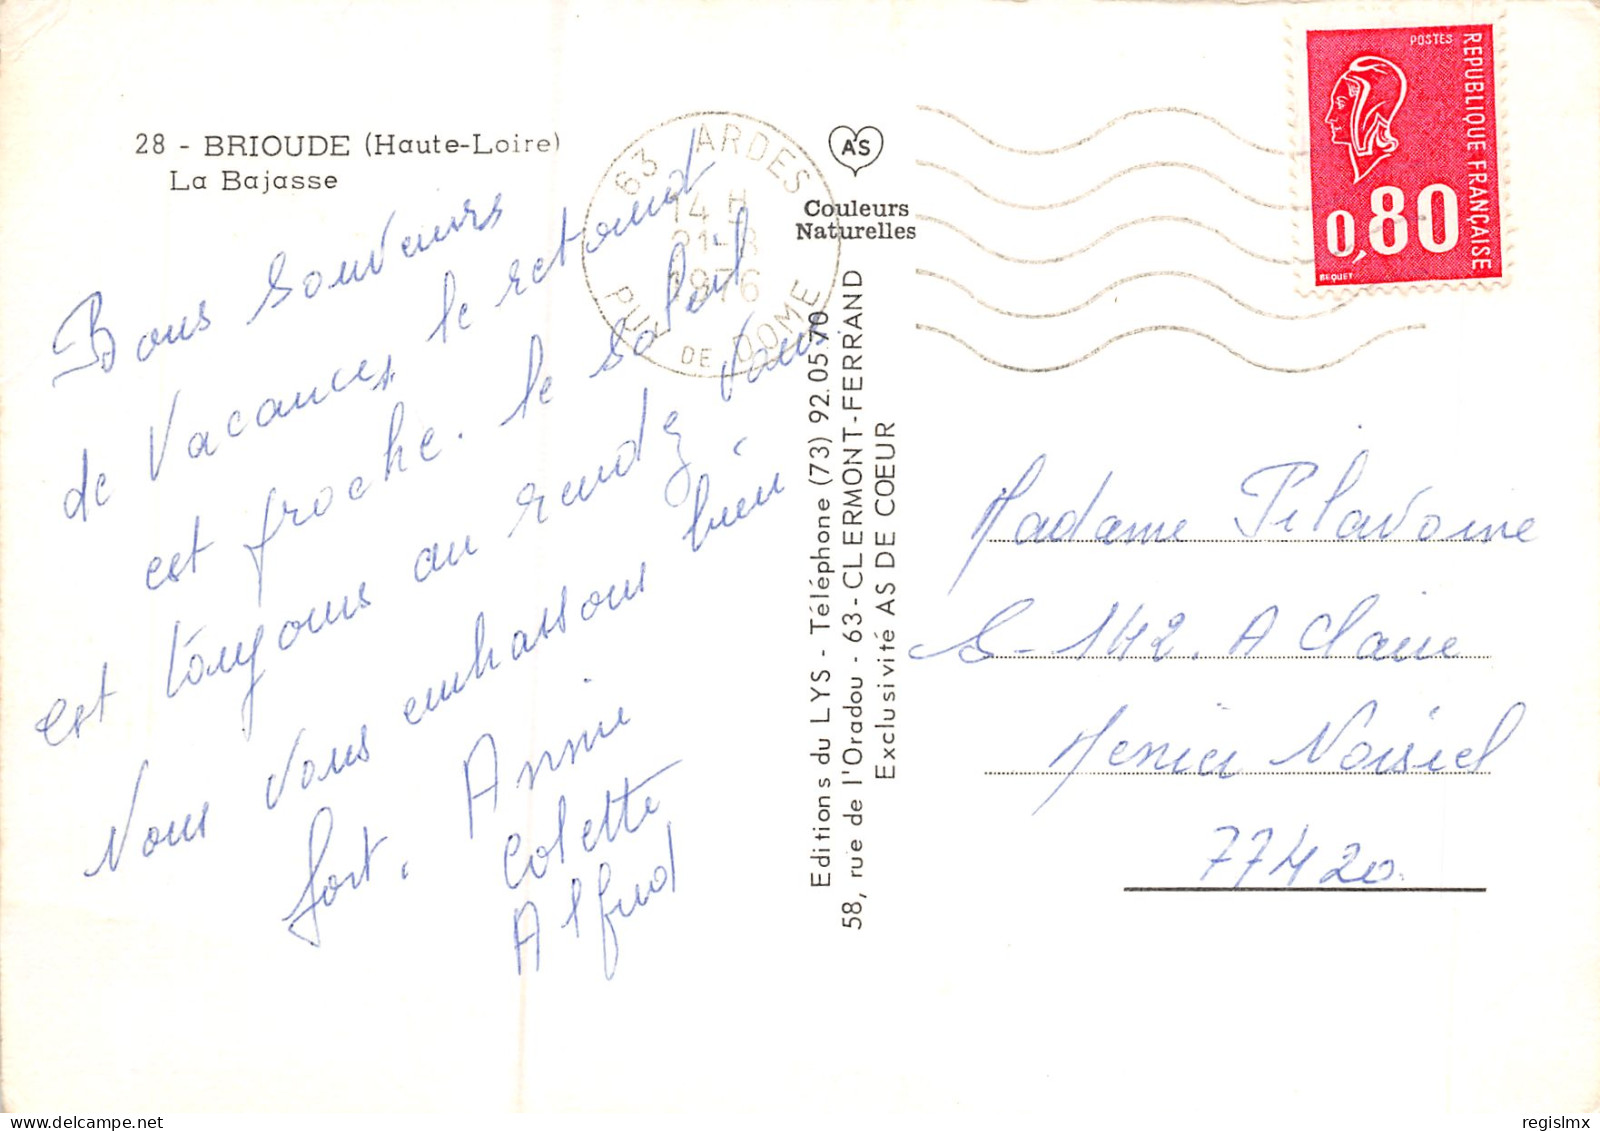 28 - BRIOUDE (Haute-Loire)
La Bajasse
Bons Souvenirs
de Vacances, le retour
est proche. le Soleil
est toujours au rendez vous
Nous Vous embrassons bien
fort.
Annie
Colette
Alfred
63 ARDES
14 H
21-8
1976
PUY DE DOME
AS
Couleurs
Naturelles
Editions du LYS - Téléphone (73) 92.05.70
58, rue de l'Oradou - 63 - CLERMONT-FERRAND
Exclusivité AS DE COEUR
POSTES
REPUBLIQUE FRANÇAISE
0,80
BEQUET
Madame Pilavoine
S-142. A Claire
Menier Noisiel
77420
regislmx
delcampe.net